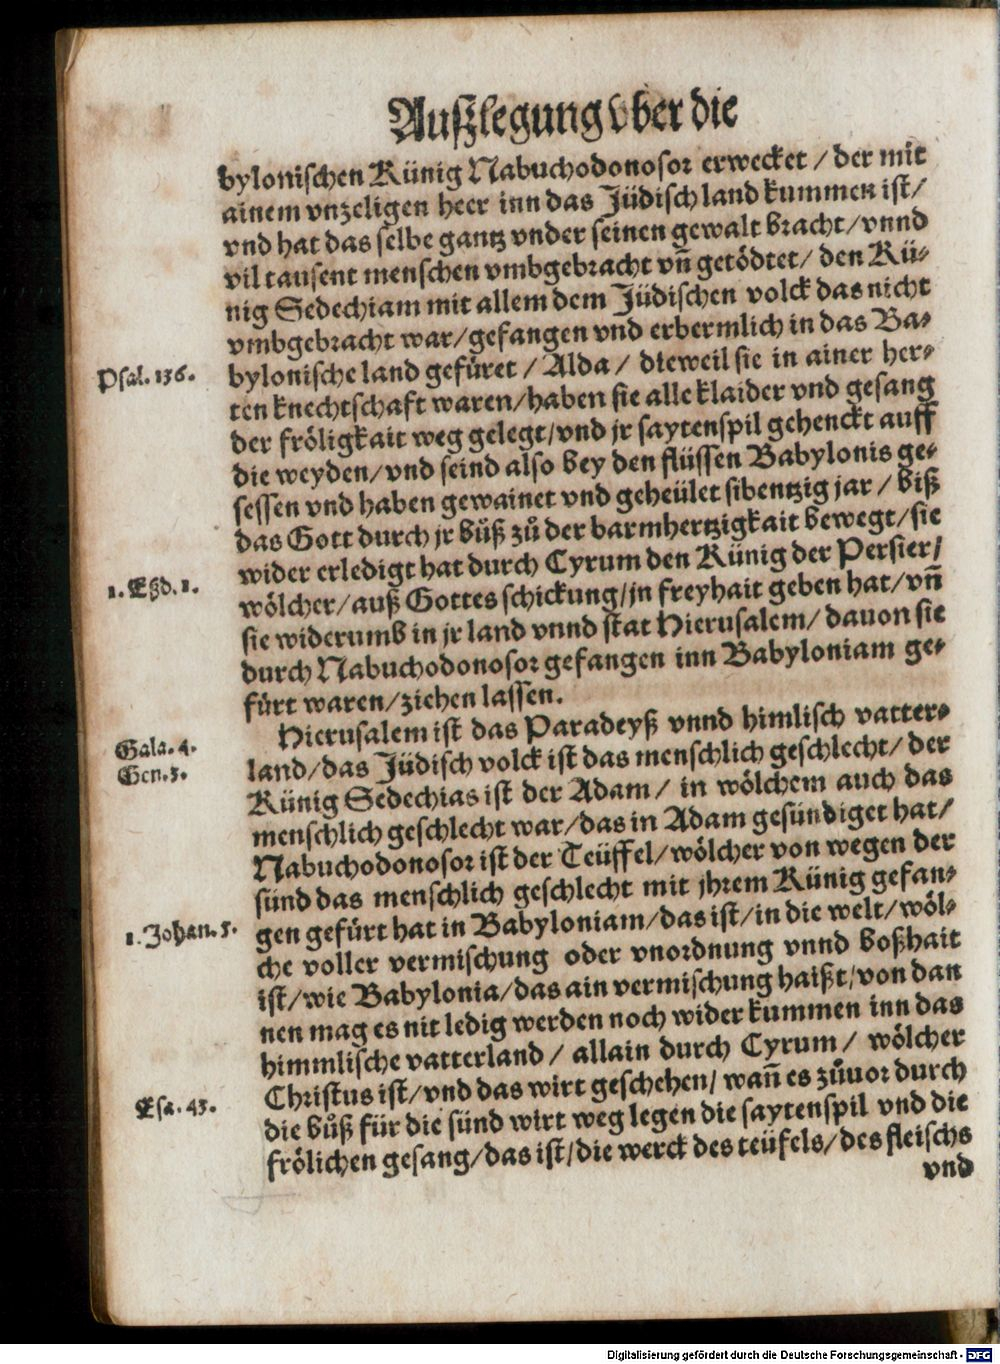 Außlegung vber die
bylonischen Künig Nabuchodonosor erwecket / der mit
ainem vnzeligen heer inn das Jüdisch land kummen ist/
vnd hat das selbe gantz vnder seinen gewalt bracht/ vnnd
vil tausent menschen vmbgebracht vñ getödtet/ den Kü-
nig Sedechiam mit allem dem Jüdischen volck das nicht
vmbgebracht war/ gefangen vnd erbermlich in das Ba-
Psal. 136.
bylonische land gefüret / Alda / dieweil sie in ainer her-
ten knechtschaft waren/ haben sie alle klaider vnd gesang
der fröligkait weg gelegt/ vnd jr saytenspil gehenckt auff
die weyden/ vnd seind also bey den flüssen Babylonis ge-
sessen vnd haben gewainet vnd geheület sibentzig jar / biß
das Gott durch jr bůß zů der barmhertzigkait bewegt/ sie
1. Eßd. 1.
wider erledigt hat durch Cyrum den Künig der Persier/
wölcher/ auß Gottes schickung/ jn freyhait geben hat/ vñ
sie widerumb in jr land vnnd stat Hierusalem/ dauon sie
durch Nabuchodonosor gefangen inn Babyloniam ge-
fürt waren/ ziehen lassen.
Hierusalem ist das Paradeyß vnnd himlisch vatter-
Gala. 4.
Gen. 3.
land/ das Jüdisch volck ist das menschlich geschlecht/ der
Künig Sedechias ist der Adam/ in wölchem auch das
menschlich geschlecht war/ das in Adam gesündiget hat/
Nabuchodonosor ist der Teüffel/ wölcher von wegen der
sünd das menschlich geschlecht mit jhrem Künig gefan-
1. Johan. 5.
gen gefürt hat in Babyloniam/ das ist/ in die welt/ wöl-
che voller vermischung oder vnordnung vnnd boßhait
ist/ wie Babylonia/ das ain vermischung haißt/ von dan
nen mag es nit ledig werden noch wider kummen inn das
himmlische vatterland / allain durch Cyrum / wölcher
Esa. 45.
Christus ist/ vnd das wirt geschehen/ wañ es zůuor durch
die bůß für die sünd wirt weg legen die saytenspil vnd die
frölichen gesang/ das ist/ die werck des teüfels/ des fleischs
vnd
Digitalisierung gefördert durch die Deutsche Forschungsgemeinschaft - DFG